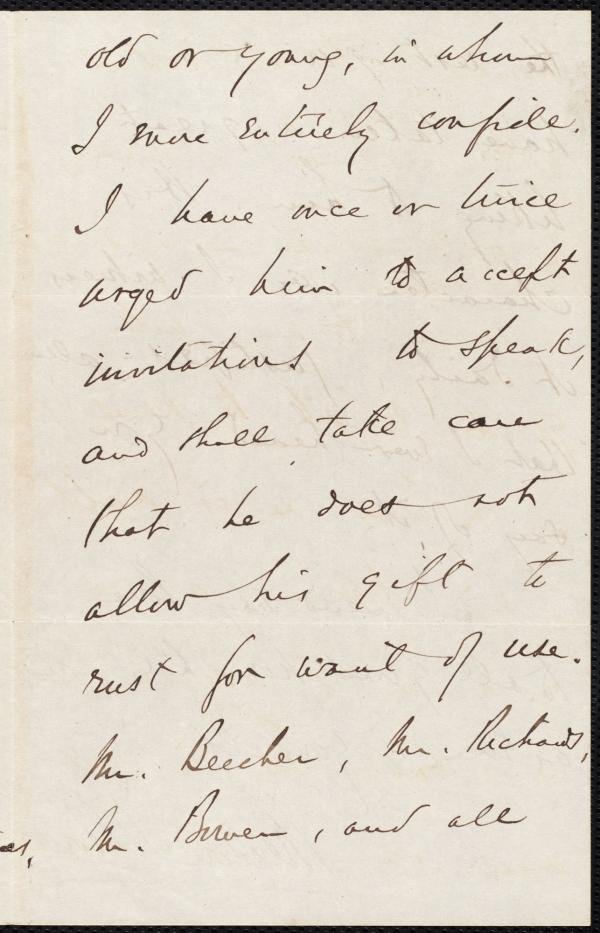 old or young, in whom
I more entirely confide.
I have once or twice
urged him to accept
invitations to speak,
and shall take care
that he does not
allow his gift to
rust for want of use.
Mr. Beecher, Mr. Richards,
Mr. Bowen, and all